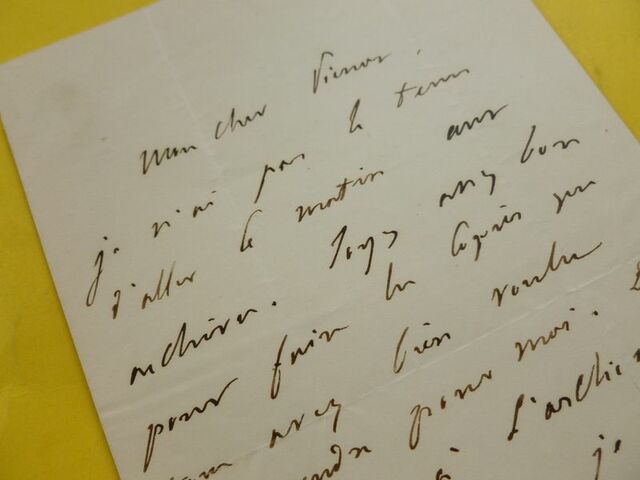 Mon cher
je n'ai pas le tems
d'aller le matin aux
archives. Soyez assez bon
pour faire les copies que
vous avez bien voulu
prendre pour moi.
à l'archi
je